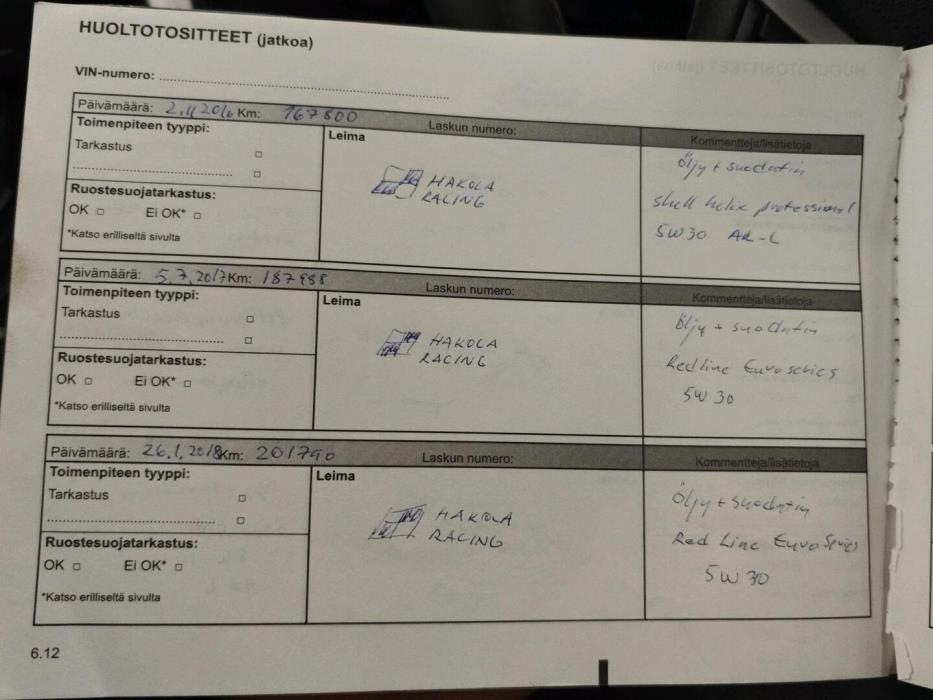 HUOLTOTOSITTEET (jatkoa)
VIN-numero: ........................................
Päivämäärä: 2.11.2016 Km: 167800 Laskun numero:
Toimenpiteen tyyppi: Leima Kommentteja/lisätietoja
Tarkastus
Öljy + suodatin
HAKOLA
RACING
Ruostesuojatarkastus:
shell helix professional
OK Ei OK*
5W30 AR-L
*Katso erilliseltä sivulta
Päivämäärä: 5.7.2017 Km: 187988 Laskun numero:
Toimenpiteen tyyppi: Leima Kommentteja/lisätietoja
Tarkastus
Öljy + suodatin
HAKOLA
RACING
Ruostesuojatarkastus:
Redline Euroseries
OK Ei OK*
5W30
*Katso erilliseltä sivulta
Päivämäärä: 26.1.2018 Km: 201790 Laskun numero:
Toimenpiteen tyyppi: Leima Kommentteja/lisätietoja
Tarkastus
Öljy + suodatin
HAKOLA
RACING
Ruostesuojatarkastus:
Red Line Euro Series
OK Ei OK*
5W30
*Katso erilliseltä sivulta
6.12